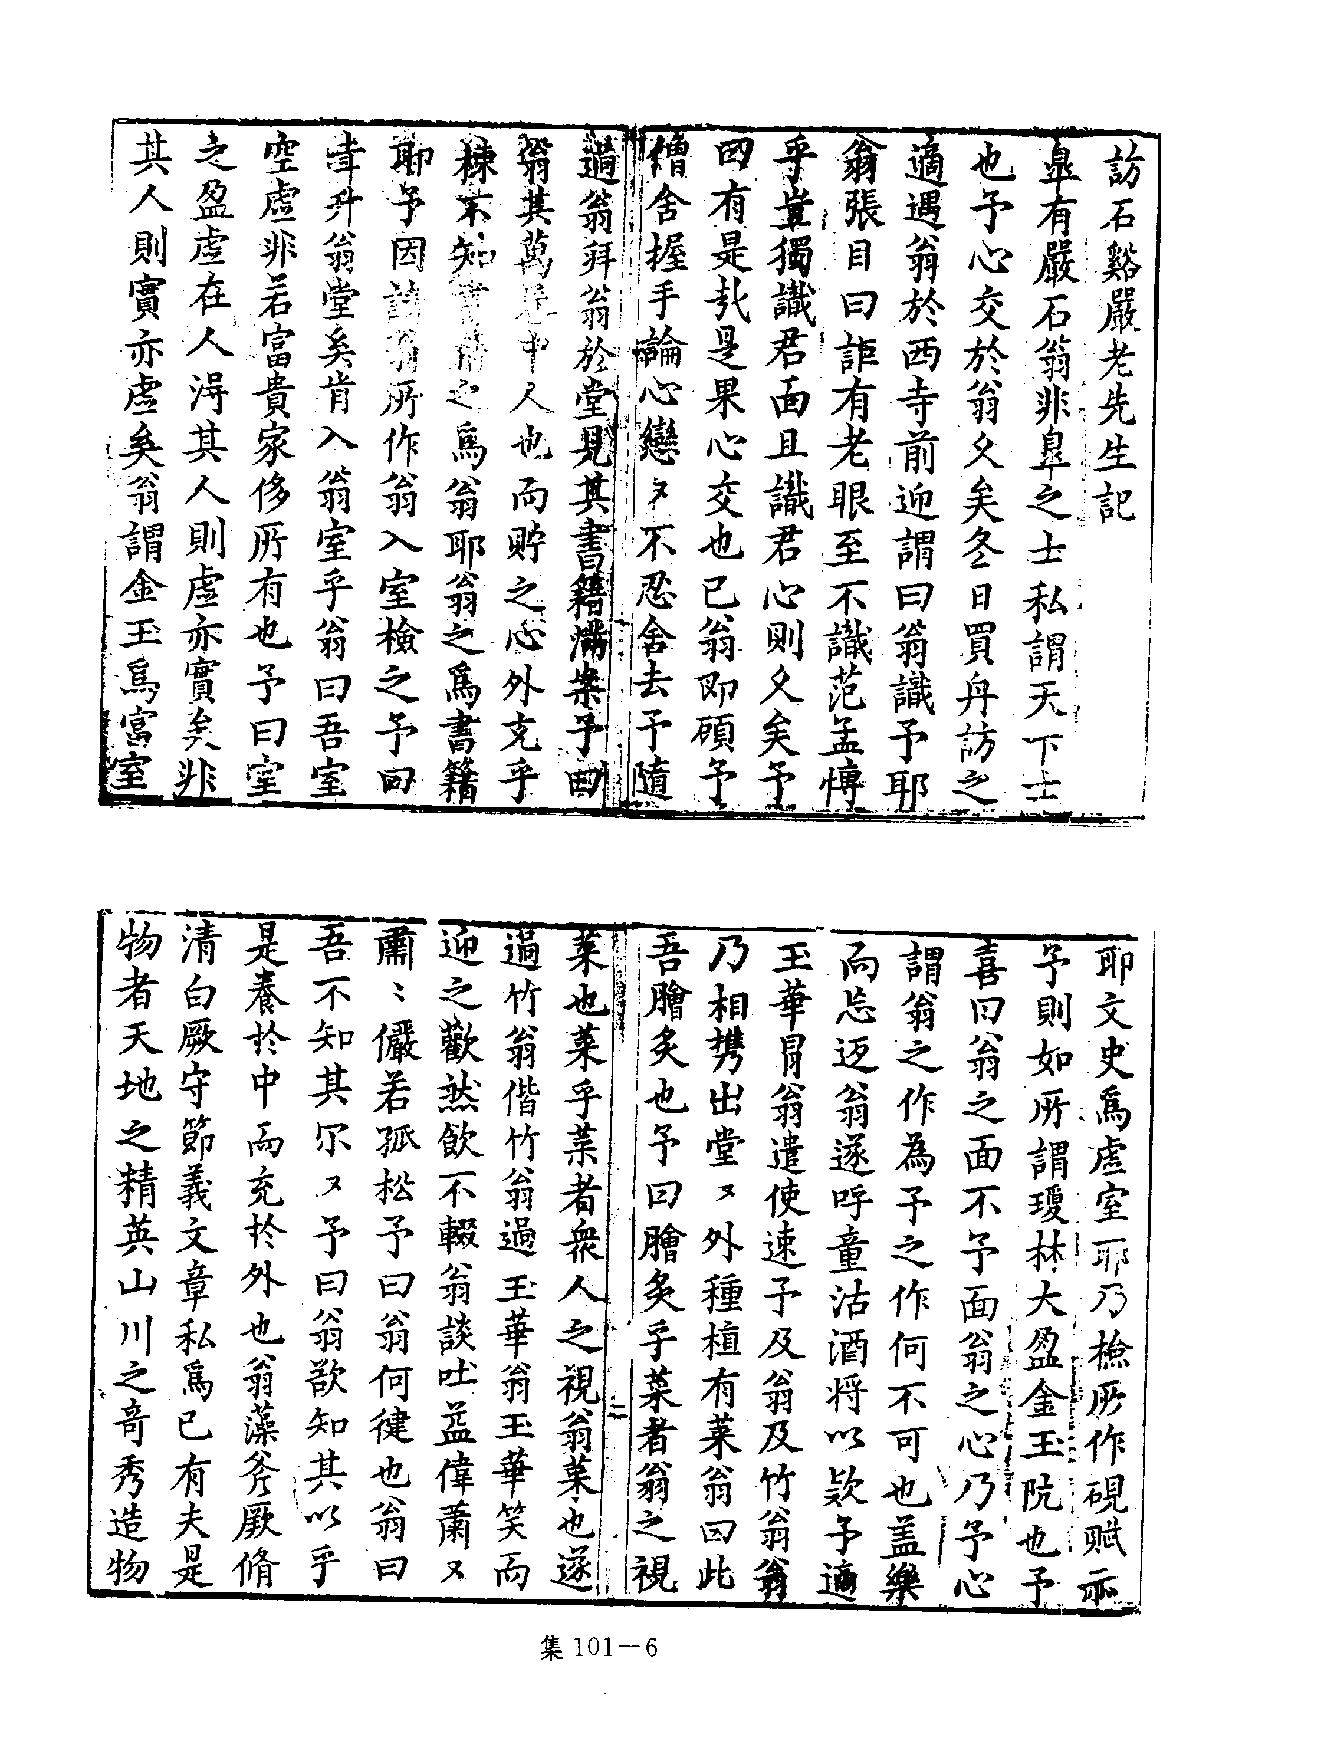 訪石谿嚴老先生記
臯有嚴石翁非臯之士私謂天下士
也予心交於翁久矣冬日買舟訪之
適遇翁於西寺前迎謂曰翁識予耶
翁張目曰詎有老眼至不識范孟慱
乎豈獨識君面且識君心則久矣予
曰有是㢤是果心交也已翁即頋予
僧舍握手論心戀々不忍舍去予随
過翁拜翁於堂見其書籍滿案予曰
翁其萬中人也而貯之心外充乎
棟不知書之爲翁耶翁之爲書籍
耶予因請翁所作翁入室檢之予曰
幸升翁堂矣肯入翁室乎翁曰吾室
空虛非若富貴家侈所有也予曰室
之盈虛在人淂其人則虛亦實矣非
其人則實亦虛矣翁謂金玉爲富室
耶文史爲虛室耶乃檢所作硯賦示
予則如所謂瓊林大盈金玉阬也予
喜曰翁之面不予面翁之心乃予心
謂翁之作為予之作何不可也盖樂
而忘返翁遂呼童沽酒将以欵予適
玉華冐翁遣使速予及翁及竹翁翁
乃相携出堂〻外種植有菜翁曰此
吾膾炙也予曰膾炙乎菜者翁之視
菜也菜乎菜者衆人之視翁菜也遂
過竹翁偕竹翁過玉華翁玉華笑而
迎之歡然飲不輟翁談吐益偉蕭〻
肅〻儼若孤松予曰翁何徤也翁曰
吾不知其尔〻予曰翁欲知其以乎
是養扵中而充扵外也翁藻斧厥脩
清白厥守節義文章私爲已有夫是
物者天地之精英山川之竒秀造物
集101—6